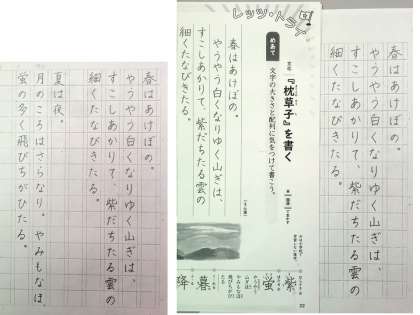 春はあけぼの。
やうやう白くなりゆく山ぎは、
すこしあかりて、紫だちたる雲の
細くたなびきたる。
夏は夜。
月のころはさらなり。やみもなほ、
蛍の多く飛びちがひたる。
レッツ・トライ
『枕草子』を書く
めあて
文字の大きさと配列に気をつけて書こう。
春はあけぼの。
やうやう白くなりゆく山ぎは、
すこしあかりて、紫だちたる雲の
細くたなびきたる。
紫
蛍
暮
降
22
春はあけぼの。
やうやう白くなりゆく山ぎは、
すこしあかりて、紫だちたる雲の
細くたなびきたる。